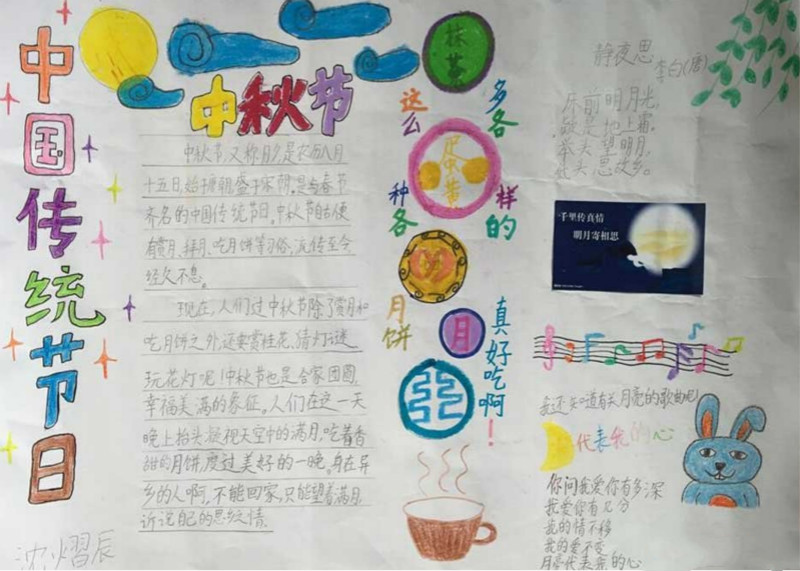 中国传统节日
中秋节
中秋节,又称月夕,是农历八月
十五日,始于唐朝,盛于宋朝,是与春节
齐名的中国传统节日。中秋节自古便
有赏月、拜月、吃月饼等习俗,流传至今
经久不息。
现在,人们过中秋节除了赏月和
吃月饼之外,还要赏桂花、猜灯谜、
玩花灯呢!中秋节也是合家团圆,
幸福美满的象征。人们在这一天
晚上抬头凝视天空中的满月,吃着香
甜的月饼,度过美好的一晚。身在异
乡的人啊,不能回家,只能望着满月
诉说自己的思纹情。
抹茶
这么多各
种各样的
月饼
真好吃啊!
月
静夜思
李白(唐)
床前明月光,
疑是地上霜。
举头望明月,
低头思故乡。
千里传真情
明月寄相思
我还知道有关月亮的歌曲呢
代表我的心
你问我爱你有多深
我爱你有几分
我的情不移
我的爱不变
月亮代表我的心